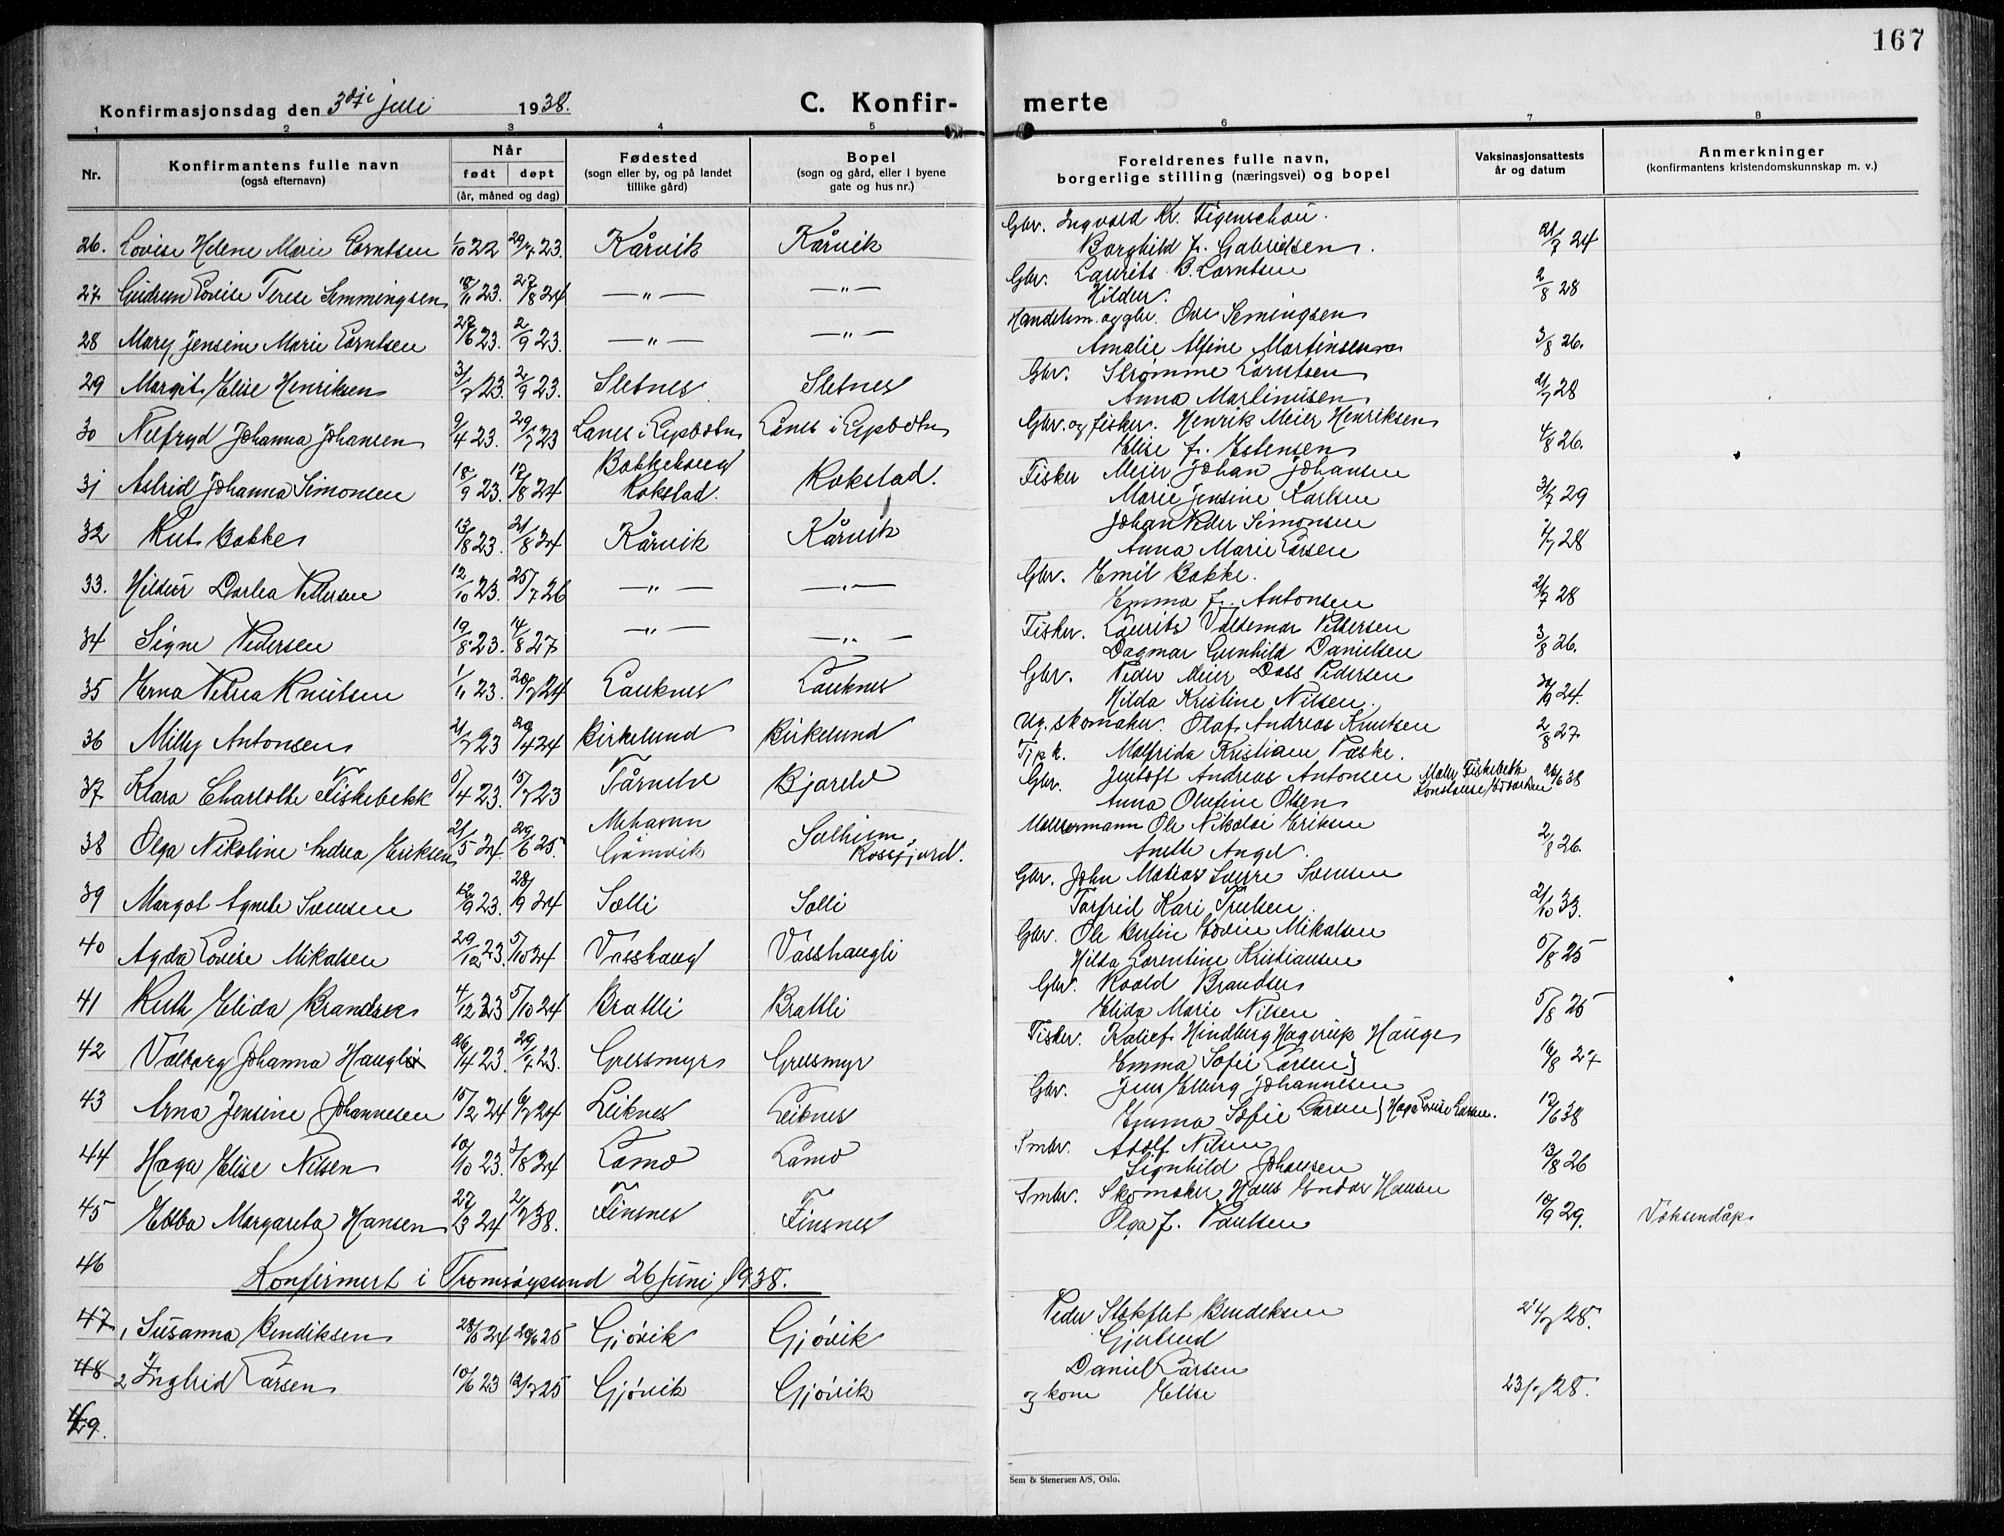 167
Konfirmasjonsdag den 3dje juli 1938.
C. Konfir-
merte
1 2 3 4 5 6 7 8
Nr.
Konfirmantens fulle navn
(også efternavn)
Når
født døpt
(år, måned og dag)
Fødested
(sogn eller by, og på landet
tillike gård)
Bopel
(sogn og gård, eller i byene
gate og hus nr.)
Foreldrenes fulle navn,
borgerlige stilling (næringsvei) og bopel
Vaksinasjonsattests
år og datum
Anmerkninger
(konfirmantens kristendomskunnskap m. v.)
Gbr. Ingvald Kr. Figenschou.
26. Lovise Helene Marie Lorntsen 1/10 22 29/7 23. Kårvik Kårvik Borghild f. Gabrielsen. 21/7 24
Gbr. Laurits B. Lorntsen
27 Gudrun Lovise Terese Semmingsen 18/11 23. 27/8 24 —„— —„— Hildur. 2/8 28
Handelsm. og gbr. Ove Semingsen
28 Mary Jensine Marie Lorntsen 29/6 23. 2/9 23. —„— —„— Amalie Alfine Martinsen 3/8 26.
Gbr. Strømme Lorntsen
29 Margit Elise Henriksen 3/7 23. 2/9 23. Sletnes Sletnes Anna Martinusen 21/7 28
Gbr. og fisker. Henrik Meier Henriksen
30 Nelfryd Johanna Johansen 9/4 23. 29/7 23 Lanes i Lysbotn Lanes i Lysbotn Elise f. Estensen 4/8 26.
Fisker Meier Johan Johansen
31 Astrid Johanna Simonsen 18/9 23. 17/8 24 Bakkehaug Rokstad. Rokstad. Marie Jensine Karlsen 31/7 29
Johan Peder Simonsen
32 Rut Bakke 13/8 23. 21/8 24 Kårvik Kårvik Anna Marie Larsen 28
Gbr. Emil Bakke.
33. Hildur Dorlea Pettersen 12/10 23. 25/7 26 —„— —„— Emma f. Antonsen 21/7 28
Fisker. Laurits Valdemar Pettersen
34 Signe Pedersen 19/8 23. 14/8 27 —„— —„— Dagmar Gunhild Danielsen 3/8 26.
Gbr. Peder Meier Dass Pedersen
35 Erna Petrea Knutsen 1/11 23. 20/7 24 Lauknes Lauknes Hilda Kristine Nilsen. 24.
Ug. skomaker. Olaf Andreas Knutsen
36 Milly Antonsen 21/7 23 20/4 24 Birkelund Birkelund Tjpk. Malfrida Kristiane Paske. 2/8 27
Gbr. Justoft Andreas Antonsen Maler Fiskebekk 26/6 38
37 Klara Charlotte Fiskebekk 5/4 23. 15/7 23 Tårnelv Bjorelv Anna Olufine Olsen
Ole Nikolai Eriksen
38 Olga Nikoline Andrea Eriksen 21/5 24. 29/6 25. Mehamn Gamvik Solheim Rossfjord. Anette Angel. 2/8 26.
Gbr. John Matias Sverre Svensen
39 Margot Agnete Svensen 12/9 23. 28/9 24 Solli Solli Torfrid Kari Trulsen. 21/10 33.
Gbr. Ole Rufin Edvin Mikalsen
40 Agda Lovise Mikalsen 29/12 23. 5/10 24 Vasshaug Vasshaugli Hilda Lorentine Kristiansen 5/8 25
Gbr. Roald Brandser
41 Ruth Elida Brandser 4/12 23 5/10 24 Brattli Brattli Elida Marie Nilsen 5/8 25
Fisker. Hindberg Hagerup Hauge
42 Valborg Johanna Haugli 26/4 23. 29/7 23. Gressmyr Gressmyr Emma Sofie Larsen} 16/8 27
Gbr. Jens Elling Johannesen
43 Arna Jensine Johannesen 15/2 24 6/7 24 Leiknes Leiknes Emma Sofie Larsen} Haga Lovise Larsen. 12/6 38
Smbr. Adolf Nilsen
44 Haga Elise Nilsen 10/10 23. 3/8 24 Lamo Lamo Signhild Johansen 13/8 26
Smbr. Skomaker Hans Endor Hansen
45 Ebba Margareta Hansen 27/3 24 2/7 38. Finsnes Finsnes Olga f. Paulsen 10/9 29. Voksendåp.
46
Konfirmert i Tromsøysund 26 juni 1938.
47 1 Susanna Bendiksen 28/5 24 29/6 25 Gjøvik Gjøvik Peder Stokflet Bendiksen 28.
Gjertrud
48 2 Ingrid Larsen 10/6 23 12/7 25 Gjøvik Gjøvik Daniel Larsen
og kone Elise 23/ 28.
49.
Sem & Stenersen A/S, Oslo.